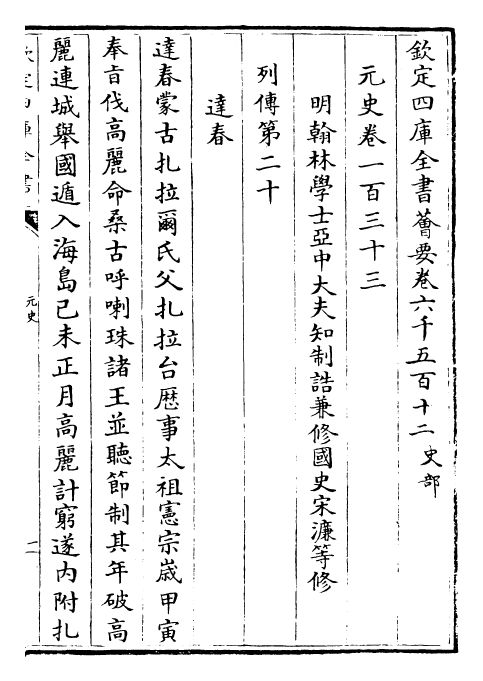 欽定四庫全書薈要卷六千五百十二 史部
元史卷一百三十三
明翰林學士亞中大夫知制誥兼修國史宋濂等修
列傳第二十
達春
達春蒙古扎拉爾氏父扎拉台歴事太祖憲宗嵗甲寅
奉旨伐高麗命桑古呼喇珠諸王並聽節制其年破高
麗連城舉國遁入海島己未正月高麗計窮遂内附扎
欽定四庫全書
元史
一